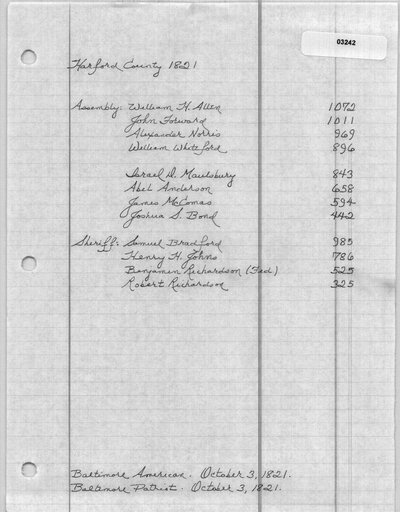 03242
Harford County 1821
Assembly: William H. Allen 1072
John Forward 1011
Alexander Norris 969
William Whiteford 896
Israel D. Maulsbury 843
Abel Anderson 658
James McComas 594
Joshua S. Bond 442
Sheriff: Samuel Bradford 985
Henry H. Johns 786
Benjamin Richardson (Fed) 525
Robert Richardson 325
Baltimore American. October 3, 1821.
Baltimore Patriot. October 3, 1821.